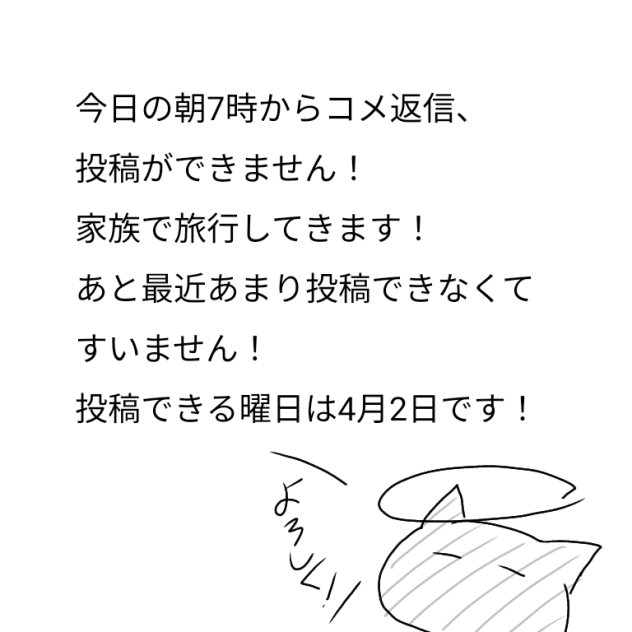 今日の朝7時からコメ返信、
投稿ができません！
家族で旅行してきます！
あと最近あまり投稿できなくて
すいません！
投稿できる曜日は4月2日です！
よろしく!